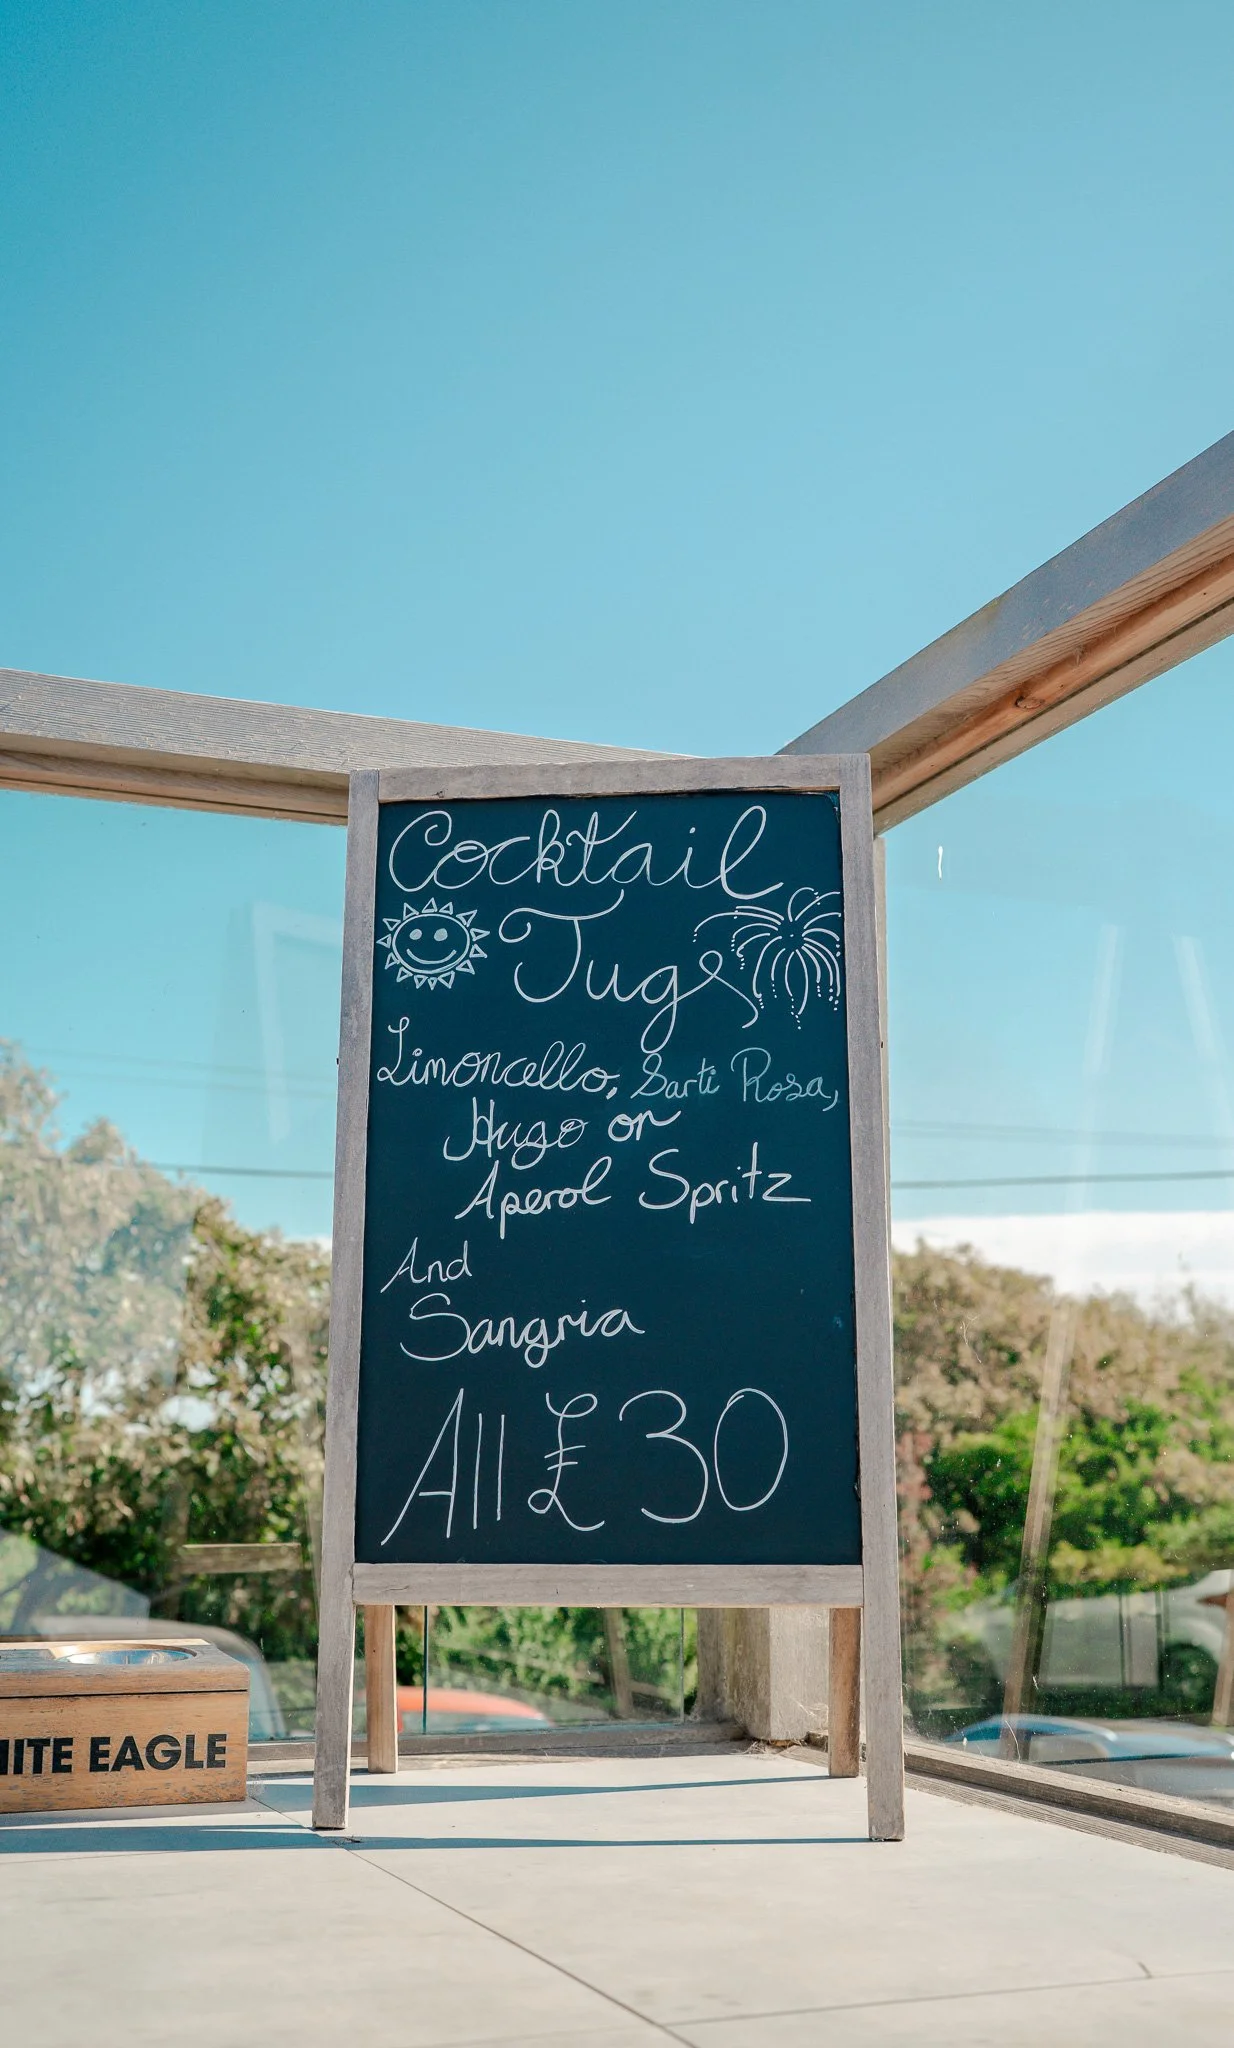 Cocktail
Jugs
Limoncello, Sarti Rosa,
Hugo or
Aperol Spritz
And
Sangria
All £30
EAGLE